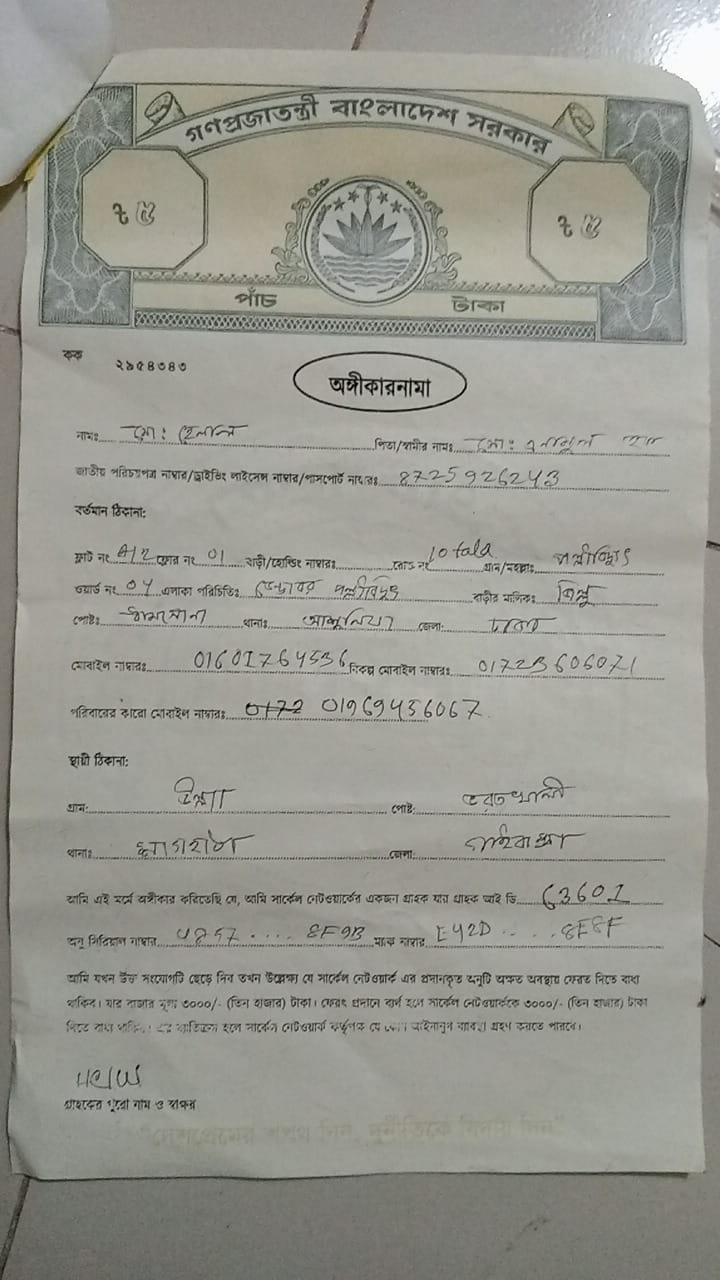 গণপ্রজাতন্ত্রী বাংলাদেশ সরকার
৳ ৫ ৳ ৫
পাঁচ টাকা
কক ২৯৫৪৩৪৩
অঙ্গীকারনামা
নামঃ মো: হেলাল পিতা/স্বামীর নামঃ মো: এনামুল হক
জাতীয় পরিচয়পত্র নাম্বার/ড্রাইভিং লাইসেন্স নাম্বার/পাসপোর্ট নাম্বারঃ 8725926243
বর্তমান ঠিকানা:
ফ্লাট নং A/2 ফ্লোর নং 01 বাড়ী/হোল্ডিং নাম্বারঃ রোড নং 10 tala গ্রাম/মহল্লাঃ পল্লীবিদ্যুৎ
ওয়ার্ড নং 04 এলাকা পরিচিতিঃ ডেন্ডাবর পল্লীবিদ্যুৎ বাড়ীর মালিকঃ
পোষ্টঃ ধামসোনা থানাঃ আশুলিয়া জেলা: ঢাকা
মোবাইল নাম্বারঃ 01601764536 বিকল্প মোবাইল নাম্বারঃ 01723606071
পরিবারের কারো মোবাইল নাম্বারঃ 0172 01969456067
স্থায়ী ঠিকানা:
গ্রাম: পোষ্ট: ভরতখালী
থানাঃ জেলা: গাইবান্ধা
আমি এই মর্মে অঙ্গীকার করিতেছি যে, আমি সার্কেল নেটওয়ার্কের একজন গ্রাহক যার গ্রাহক আই ডি 63601
অনু সিরিয়াল নাম্বার 4857 .... 8F9B ম্যাক নাম্বার E42D .... 8F8F
আমি যখন উক্ত সংযোগটি ছেড়ে দিব তখন উল্লেখ্য যে সার্কেল নেটওয়ার্ক এর প্রদানকৃত অনুটি অক্ষত অবস্থায় ফেরত দিতে বাধ্য
থাকিব। যার বাজার মূল্য ৩০০০/- (তিন হাজার) টাকা। ফেরৎ প্রদানে ব্যর্থ হলে সার্কেল নেটওয়ার্ককে ৩০০০/- (তিন হাজার) টাকা
দিতে বাধ্য থাকিব। এর ব্যতিক্রম হলে সার্কেল নেটওয়ার্ক কর্তৃপক্ষ যে কোন আইনানুগ ব্যবস্থা গ্রহণ করতে পারবে।
গ্রাহকের পুরো নাম ও স্বাক্ষর
"দেশপ্রেমের শপথ নিন, দুর্নীতিকে বিদায় দিন"